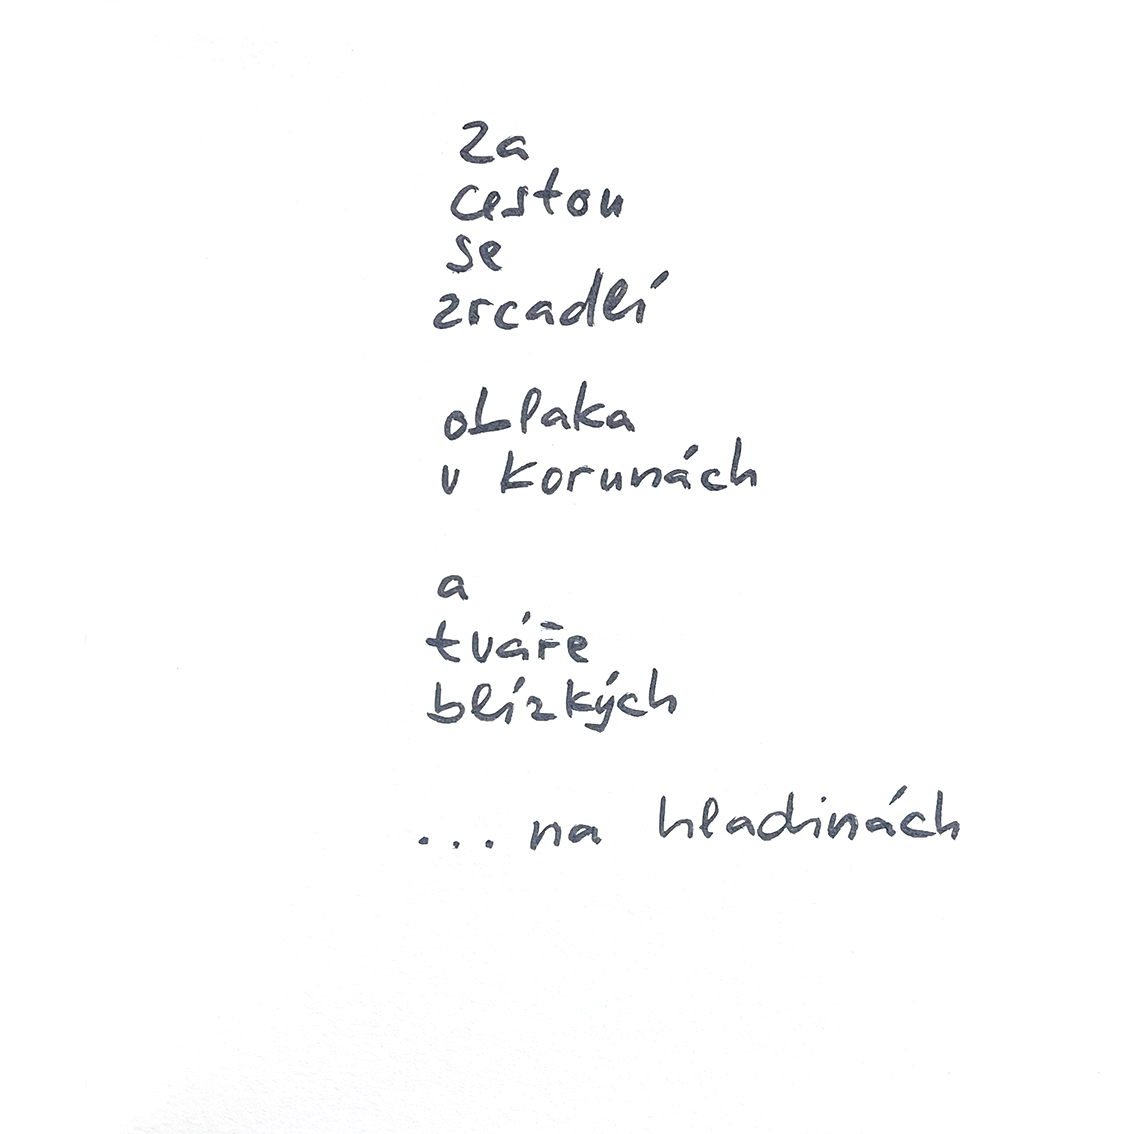 za
cestou
se
zrcadlí
oblaka
v korunách
a
tváře
blízkých
... na hladinách